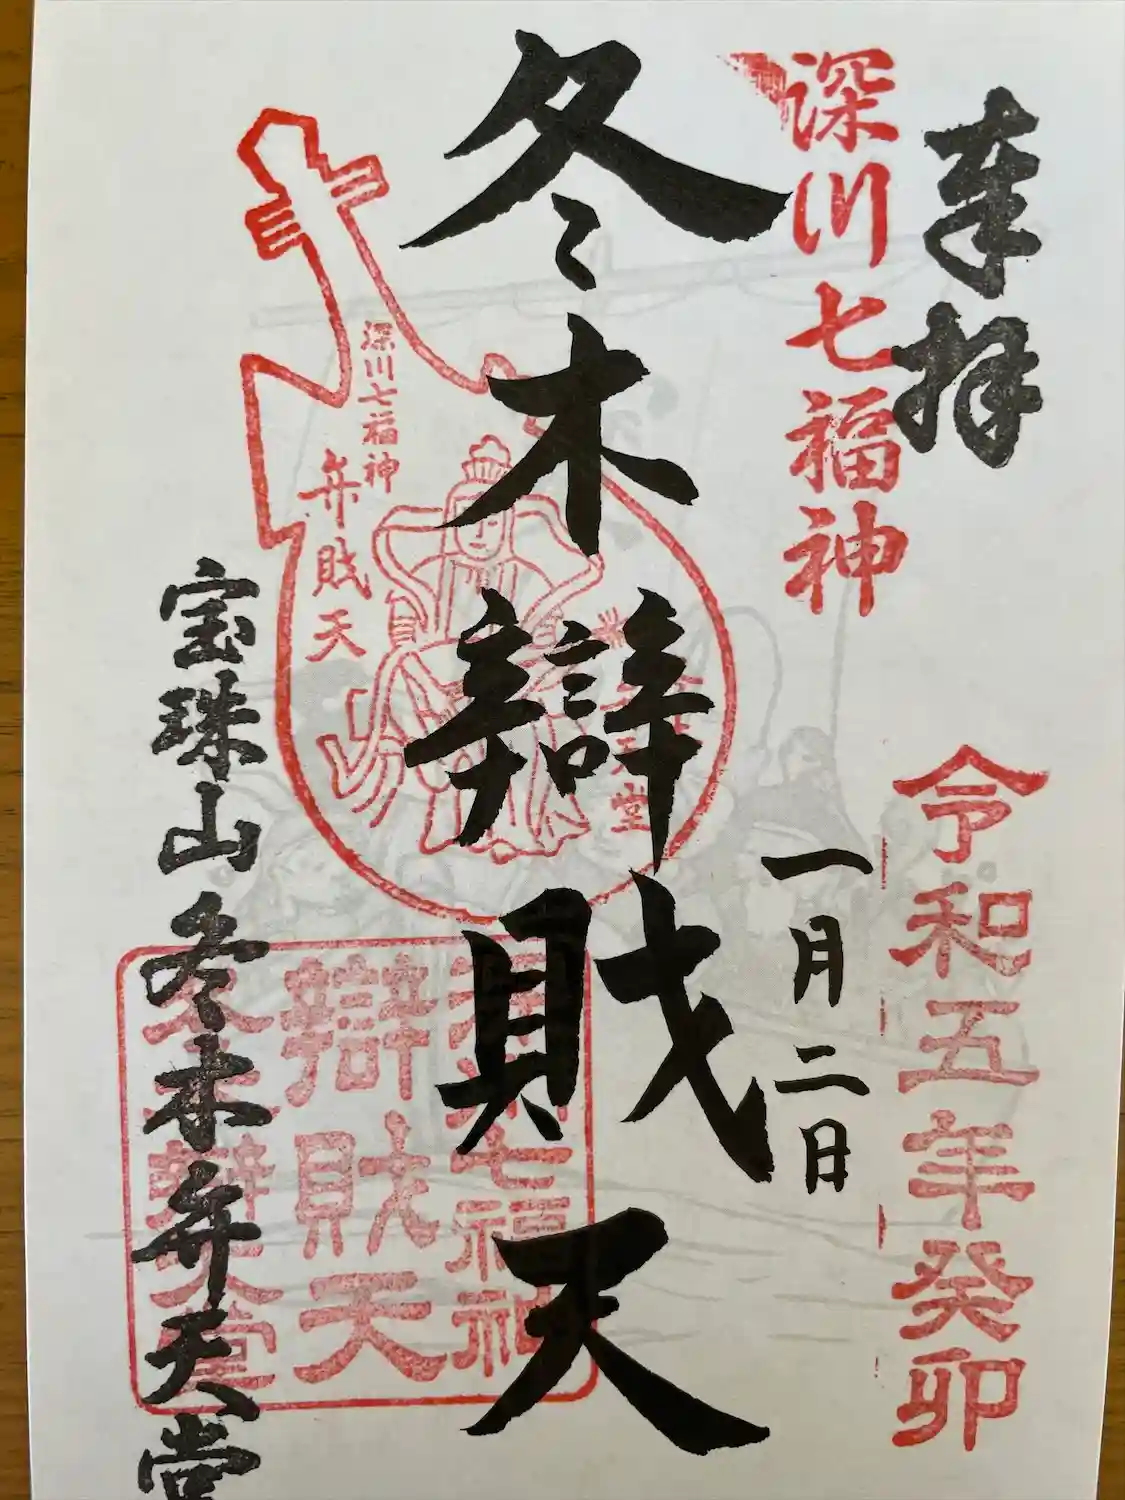 奉拝
深川七福神
令和五年癸卯
一月二日
冬木辯財天
深川七福神
弁財天
冬木弁天堂
深川七福神
辯財天
冬木辯天堂
宝珠山冬木弁天堂